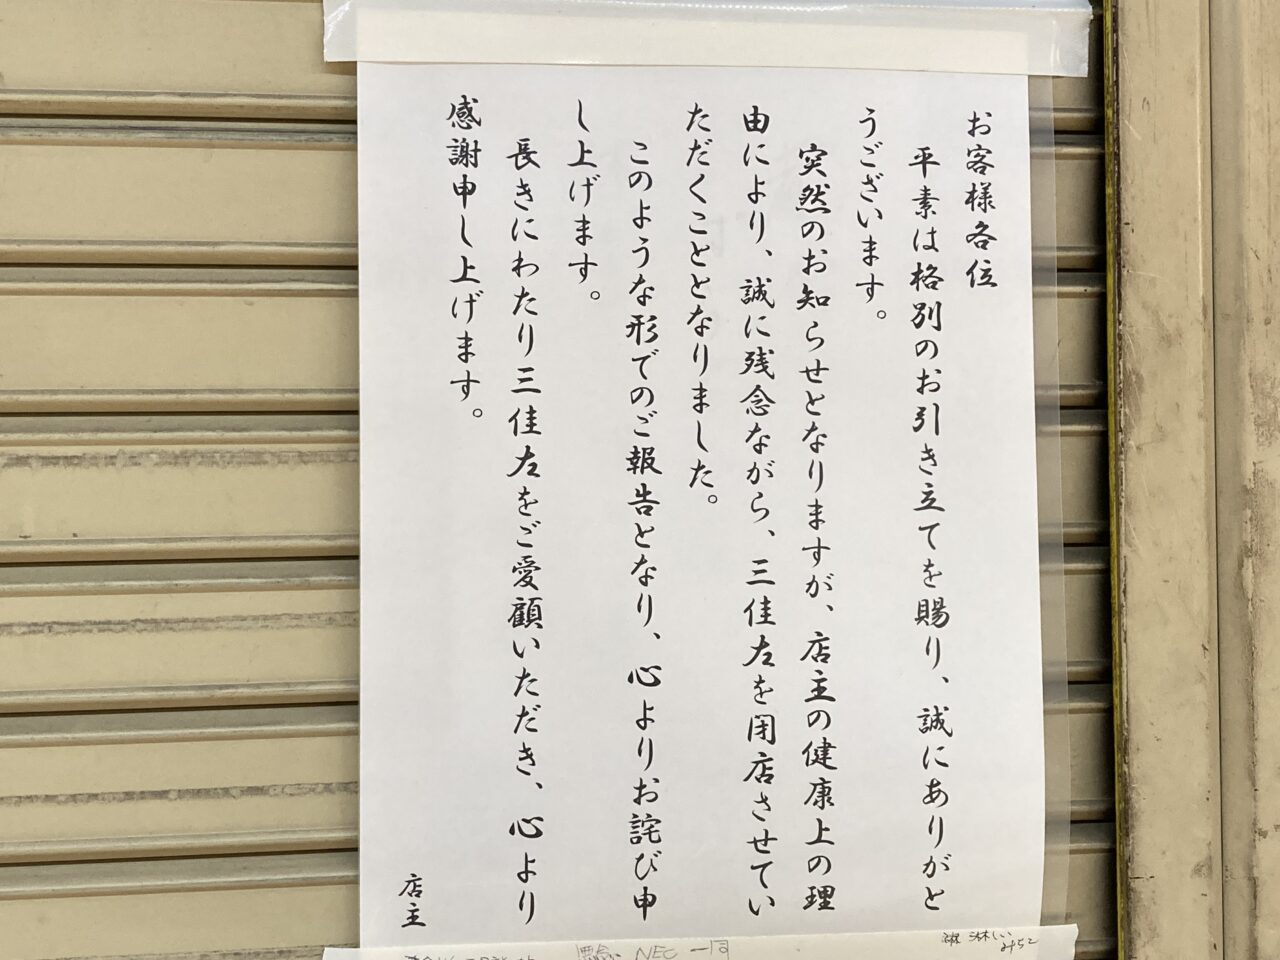 お客様各位
平素は格別のお引き立てを賜り、誠にありがと
うございます。
突然のお知らせとなりますが、店主の健康上の理
由により、誠に残念ながら、三佳左を閉店させてい
ただくこととなりました。
このような形でのご報告となり、心よりお詫び申
し上げます。
長きにわたり三佳左をご愛顧いただき、心より
感謝申し上げます。
店主
淋しい
みちこ
NEC 一同